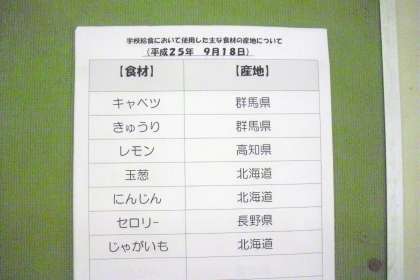 学校給食において使用した主な食材の産地について
（平成25年　9月18日）
【食材】　【産地】
キャベツ　群馬県
きゅうり　群馬県
レモン　高知県
玉葱　北海道
にんじん　北海道
セロリー　長野県
じゃがいも　北海道